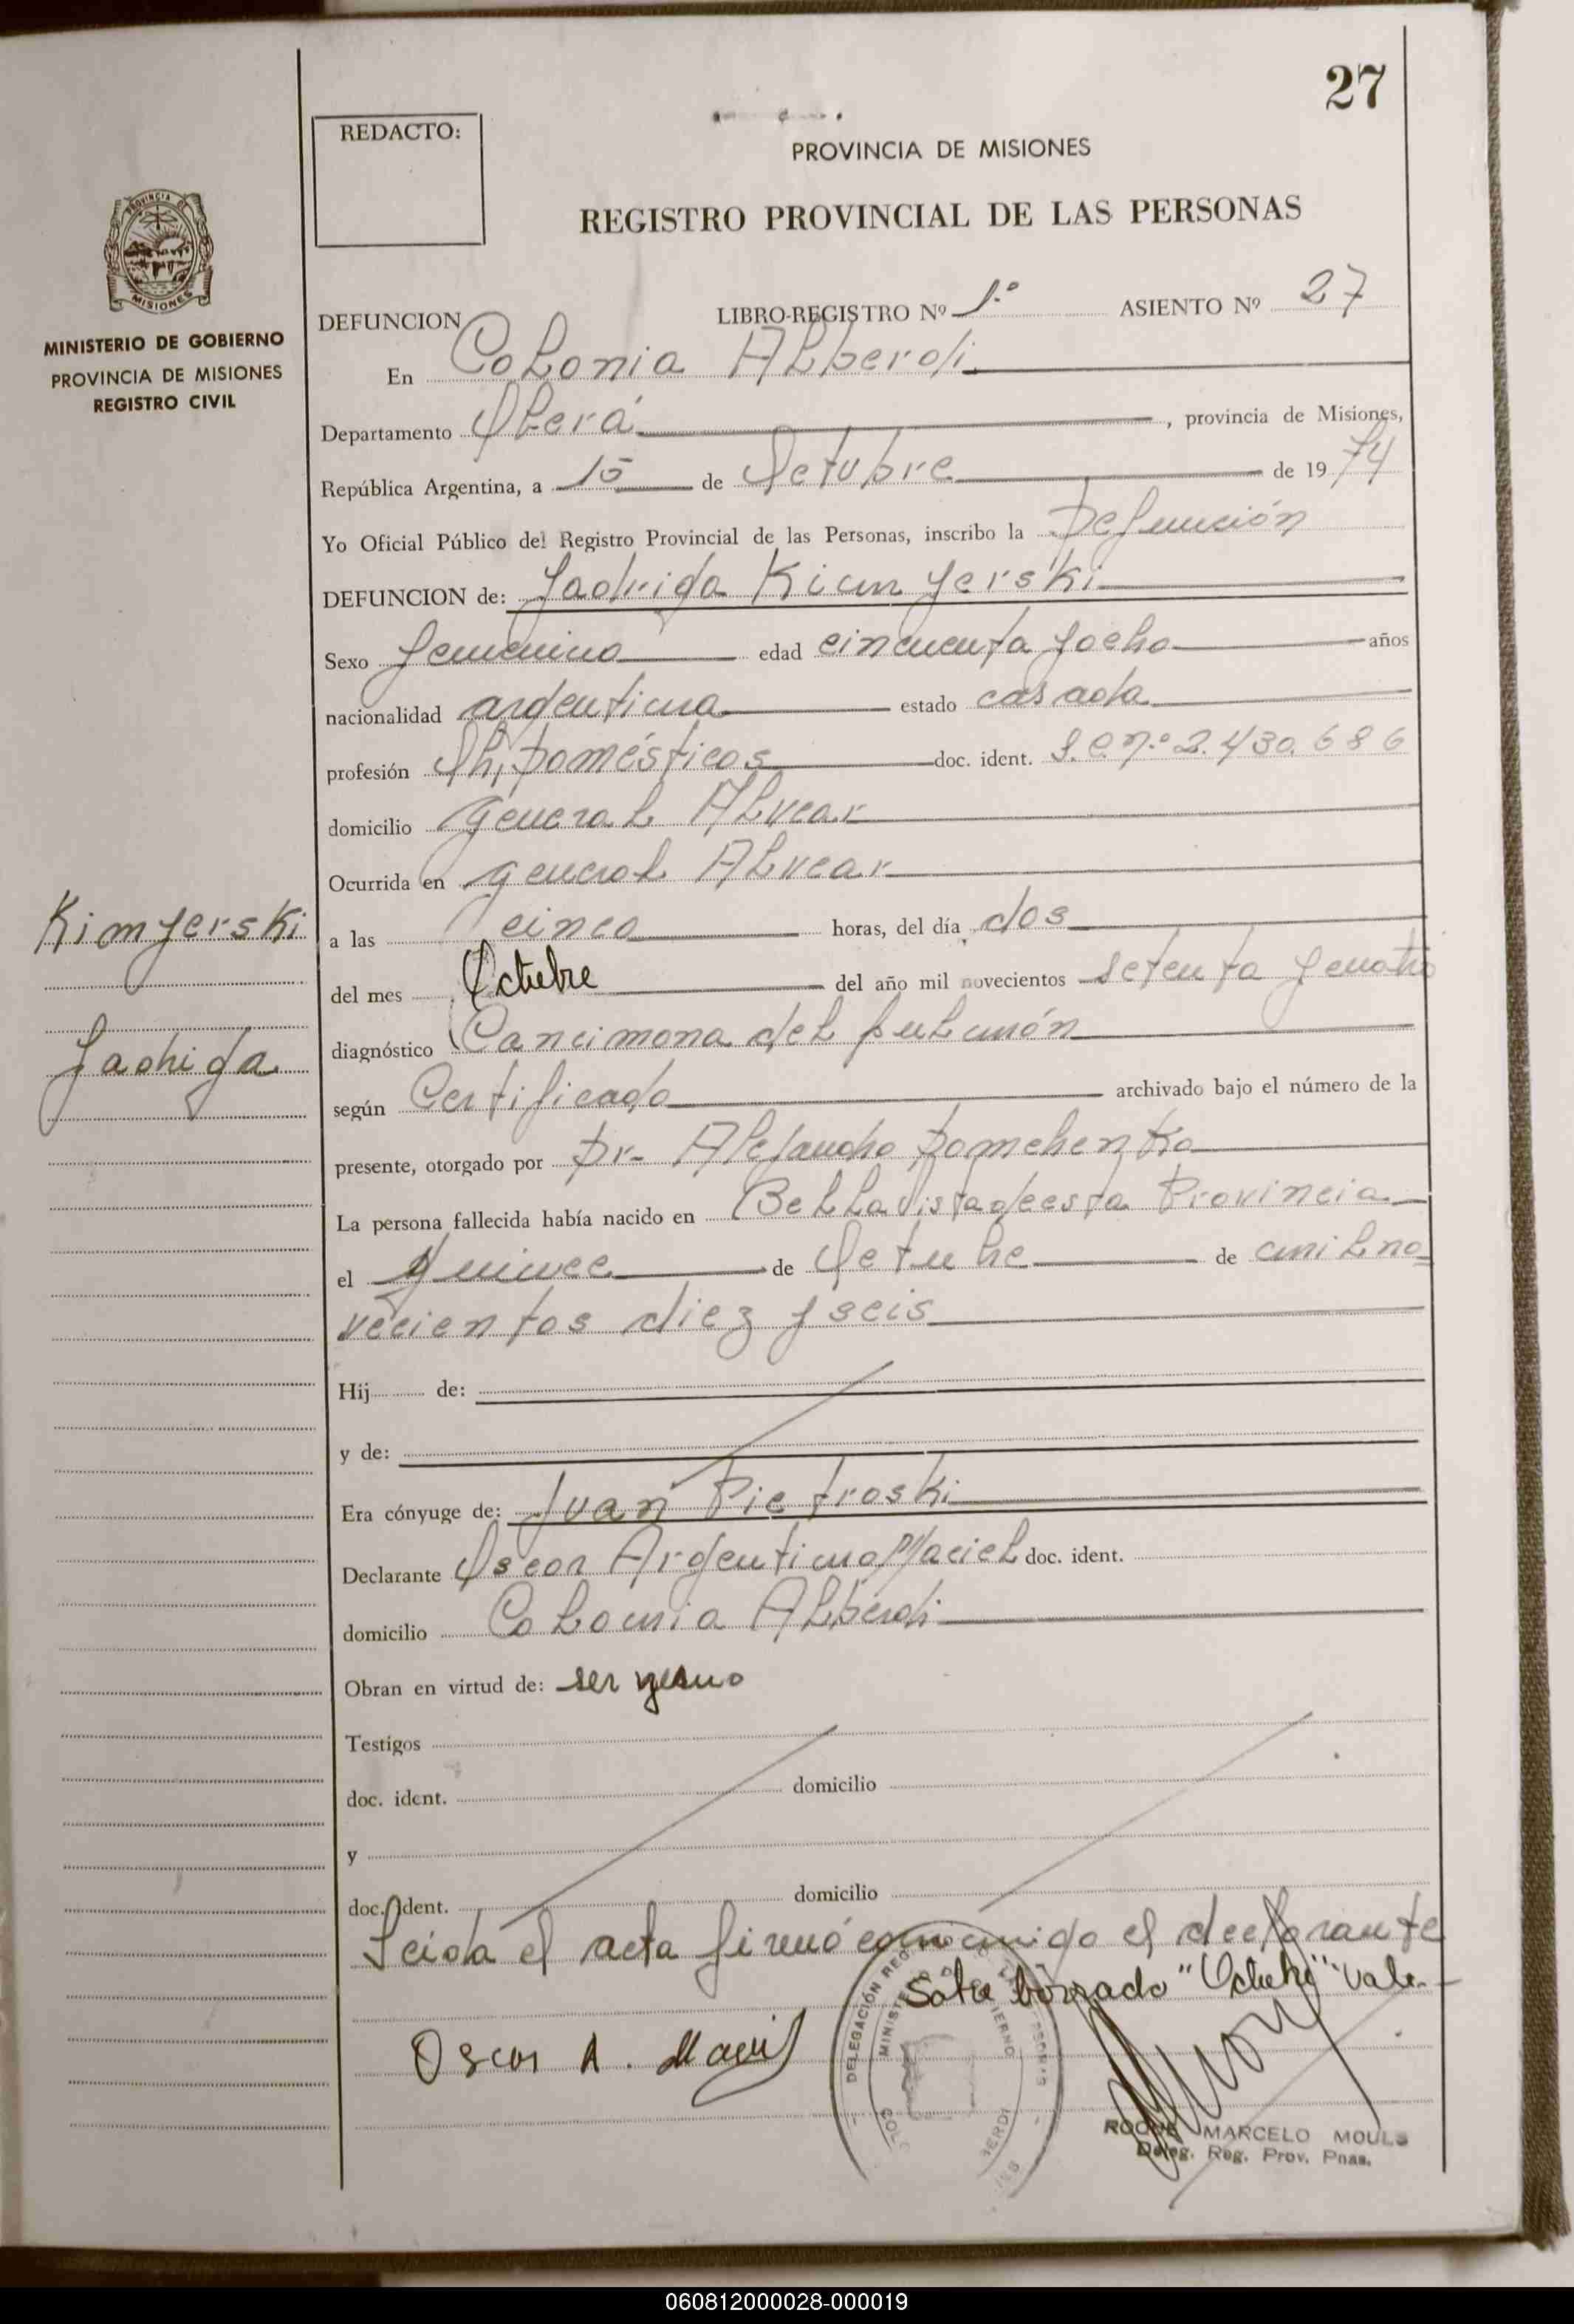 27
REDACTO:
PROVINCIA DE MISIONES
REGISTRO PROVINCIAL DE LAS PERSONAS
PROVINCIA DE
MISIONES
MINISTERIO DE GOBIERNO
PROVINCIA DE MISIONES
REGISTRO CIVIL
DEFUNCION LIBRO-REGISTRO Nº 1.º ASIENTO Nº 27
En Colonia Alberdi
Departamento Oberá, provincia de Misiones,
República Argentina, a 15 de Octubre de 1974
Yo Oficial Público del Registro Provincial de las Personas, inscribo la Defunción
DEFUNCION de: Jadviga Kimyerski
Sexo femenino edad cincuenta y ocho años
nacionalidad argentina estado casada
profesión Domésticos doc. ident. L.C. nº 2.430.686
domicilio General Alvear
Ocurrida en General Alvear
a las cinco horas, del día dos
Kimyerski
del mes Octubre del año mil novecientos setenta y cuatro
diagnóstico Cancimona del pulmón
Jadviga
según Certificado archivado bajo el número de la
presente, otorgado por Dr. Alejandro Domchenko
La persona fallecida había nacido en Bella Vista de esta Provincia
el quince de Octubre de mil no
vecientos diez y seis
Hij de:
y de:
Era cónyuge de: Juan Pietroski
Declarante Oscar Argentino Maciel doc. ident.
domicilio Colonia Alberdi
Obran en virtud de: ser yerno
Testigos
doc. ident. domicilio
y
doc. ident. domicilio
Leída el acta firmó conmigo el declarante
Sobre borrado "Octubre" vale
Oscar A. Maciel
DELEGACIÓN REG.
ROQUE MARCELO MOULS
Deleg. Reg. Prov. Pnas.
060812000028-000019